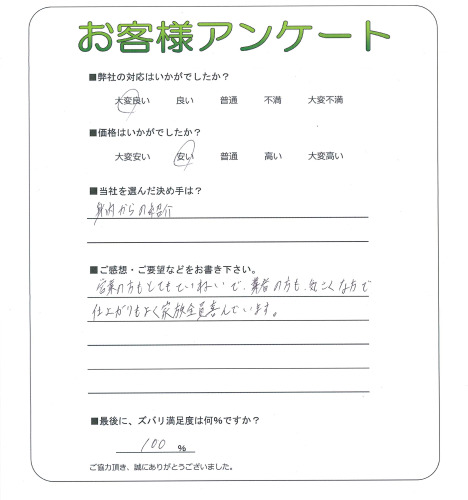 お客様アンケート
■弊社の対応はいかがでしたか？
大変良い 良い 普通 不満 大変不満
■価格はいかがでしたか？
大変安い 安い 普通 高い 大変高い
■当社を選んだ決め手は？
身内からの紹介
■ご感想・ご要望などをお書き下さい。
営業の方もとてもていねいで、業者の方も、気さくな方で
仕上がりもよく家族全員喜んでいます。
■最後に、ズバリ満足度は何%ですか？
100 %
ご協力頂き、誠にありがとうございました。